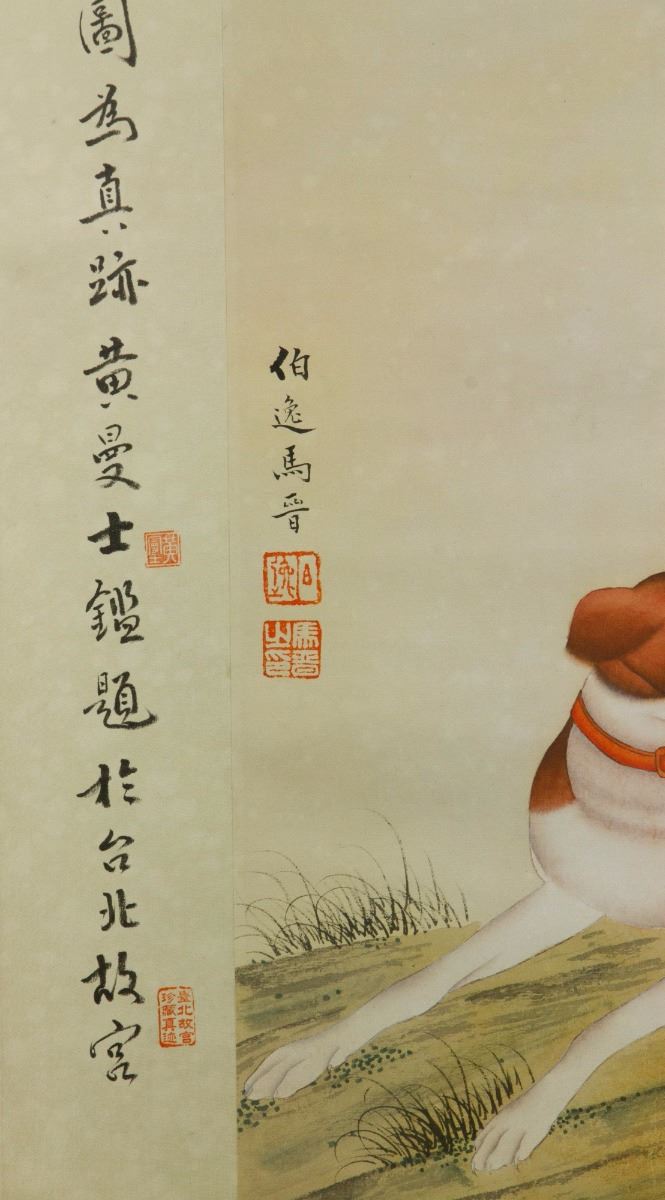 伯逸馬晉
馬晉之印
圖為真跡黃曼士鑑題於台北故宮
臺北故宮
珍藏真迹